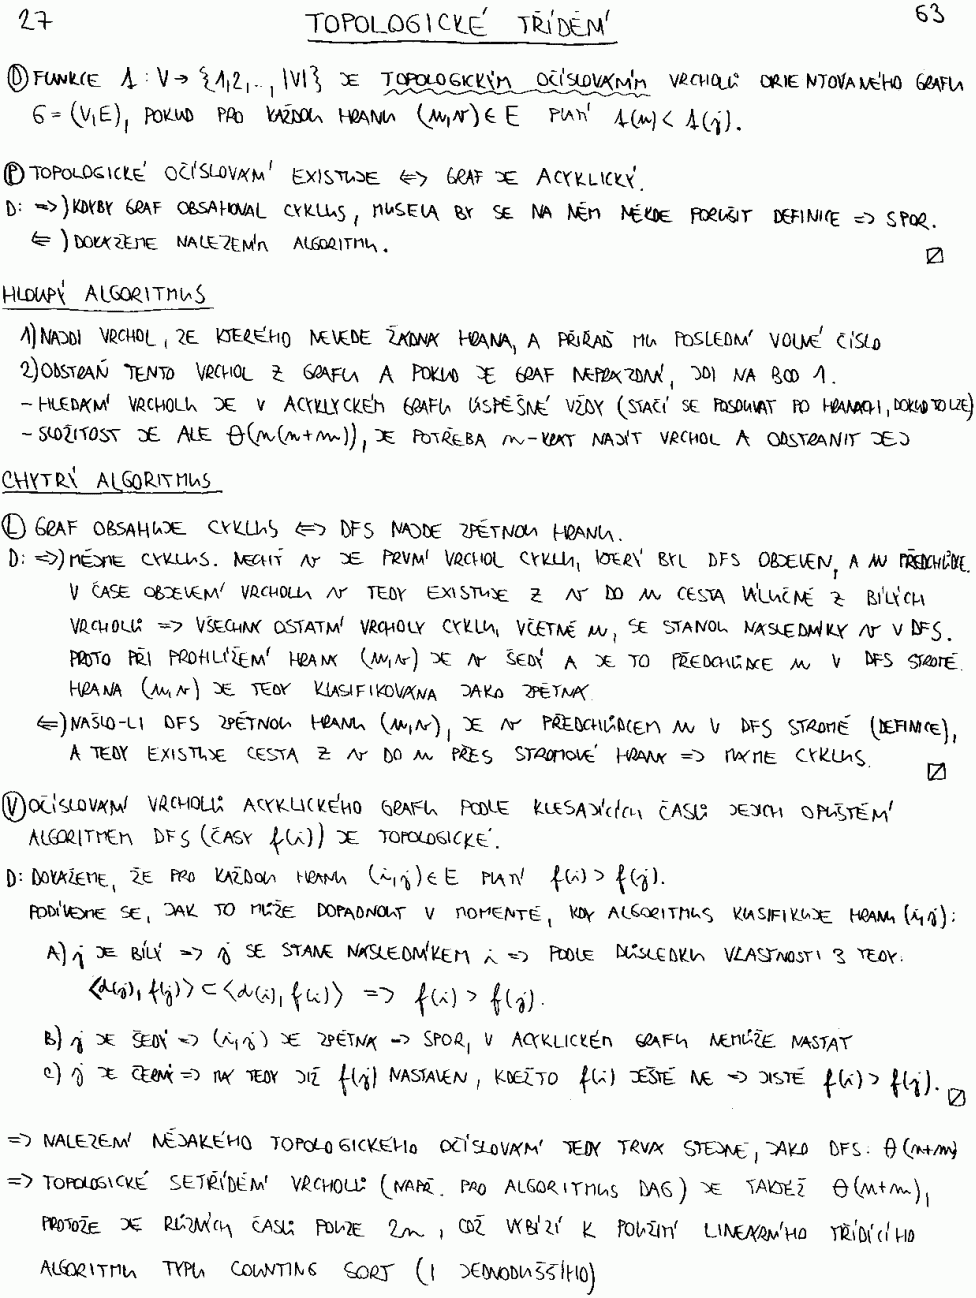 27 TOPOLOGICKÉ TŘÍDĚNÍ 63
Ⓓ FUNKCE t : V → {1,2,..,|V|} JE TOPOLOGICKÝM OČÍSLOVÁNÍM VRCHOLŮ ORIENTOVANÉHO GRAFU
G = (V,E), POKUD PRO KAŽDOU HRANU (u,v) ∈ E PLATÍ t(u) < t(j).
Ⓟ TOPOLOGICKÉ OČÍSLOVÁNÍ EXISTUJE ⇔ GRAF JE ACYKLICKÝ.
D: ⇒) KDYBY GRAF OBSAHOVAL CYKLUS, MUSELA BY SE NA NĚM NĚKDE PORUŠIT DEFINICE ⇒ SPOR.
⇐) DOKÁŽEME NALEZENÍM ALGORITMU.
HLOUPÝ ALGORITMUS
1) NAJDI VRCHOL, ZE KTERÉHO NEVEDE ŽÁDNÁ HRANA, A PŘIŘAĎ MU POSLEDNÍ VOLNÉ ČÍSLO
2) ODSTRAŇ TENTO VRCHOL Z GRAFU A POKUD JE GRAF NEPRÁZDNÝ, JDI NA BOD 1.
- HLEDÁNÍ VRCHOLU JE V ACYKLYCKÉM GRAFU ÚSPĚŠNÉ VŽDY (STAČÍ SE POSOUVAT PO HRANÁCH, DOKUD TO LZE)
- SLOŽITOST JE ALE Θ(n(n+m)), JE POTŘEBA n-KRÁT NAJÍT VRCHOL A ODSTRANIT JEJ
CHYTRÝ ALGORITMUS
Ⓛ GRAF OBSAHUJE CYKLUS ⇔ DFS NAJDE ZPĚTNOU HRANU.
D: ⇒) MĚJME CYKLUS. NECHŤ v JE PRVNÍ VRCHOL CYKLU, KTERÝ BYL DFS OBJEVEN, A u PŘEDCHŮDCE.
V ČASE OBJEVENÍ VRCHOLU v TEDY EXISTUJE Z v DO u CESTA VÝLUČNĚ Z BÍLÝCH
VRCHOLŮ ⇒ VŠECHNY OSTATNÍ VRCHOLY CYKLU, VČETNĚ u, SE STANOU NÁSLEDNÍKY v V DFS.
PROTO PŘI PROHLÍŽENÍ HRANY (u,v) JE v ŠEDÝ A JE TO PŘEDCHŮDCE u V DFS STROMĚ.
HRANA (u,v) JE TEDY KLASIFIKOVÁNA JAKO ZPĚTNÁ.
⇐) NAŠLO-LI DFS ZPĚTNOU HRANU (u,v), JE v PŘEDCHŮDCEM u V DFS STROMĚ (DEFINICE),
A TEDY EXISTUJE CESTA Z v DO u PŘES STROMOVÉ HRANY ⇒ MÁME CYKLUS.
Ⓥ OČÍSLOVÁNÍ VRCHOLŮ ACYKLICKÉHO GRAFU PODLE KLESAJÍCÍCH ČASŮ JEJICH OPUŠTĚNÍ
ALGORITMEM DFS (ČASY f(i)) JE TOPOLOGICKÉ.
D: DOKÁŽEME, ŽE PRO KAŽDOU HRANU (i,j) ∈ E PLATÍ f(i) > f(j).
PODÍVEJME SE, JAK TO MŮŽE DOPADNOUT V MOMENTĚ, KDY ALGORITMUS KLASIFIKUJE HRANU (i,j):
A) j JE BÍLÝ ⇒ j SE STANE NÁSLEDNÍKEM i ⇒ PODLE DŮSLEDKU VLASTNOSTI 3 TEDY:
⟨d(j), f(j)⟩ ⊂ ⟨d(i), f(i)⟩ ⇒ f(i) > f(j).
B) j JE ŠEDÝ ⇒ (i,j) JE ZPĚTNÁ ⇒ SPOR, V ACYKLICKÉM GRAFU NEMŮŽE NASTAT
C) j JE ČERNÝ ⇒ MÁ TEDY JIŽ f(j) NASTAVEN, KDEŽTO f(i) JEŠTĚ NE ⇒ JISTĚ f(i) > f(j).
⇒ NALEZENÍ NĚJAKÉHO TOPOLOGICKÉHO OČÍSLOVÁNÍ TEDY TRVÁ STEJNĚ, JAKO DFS: Θ(n+m)
⇒ TOPOLOGICKÉ SETŘÍDĚNÍ VRCHOLŮ (NAPŘ. PRO ALGORITMUS DAG) JE TAKTÉŽ Θ(n+m),
PROTOŽE JE RŮZNÝCH ČASŮ POUZE 2n, COŽ VYBÍZÍ K POUŽITÍ LINEÁRNÍHO TŘÍDÍCÍHO
ALGORITMU TYPU COUNTING SORT (I JEDNODUŠŠÍHO)